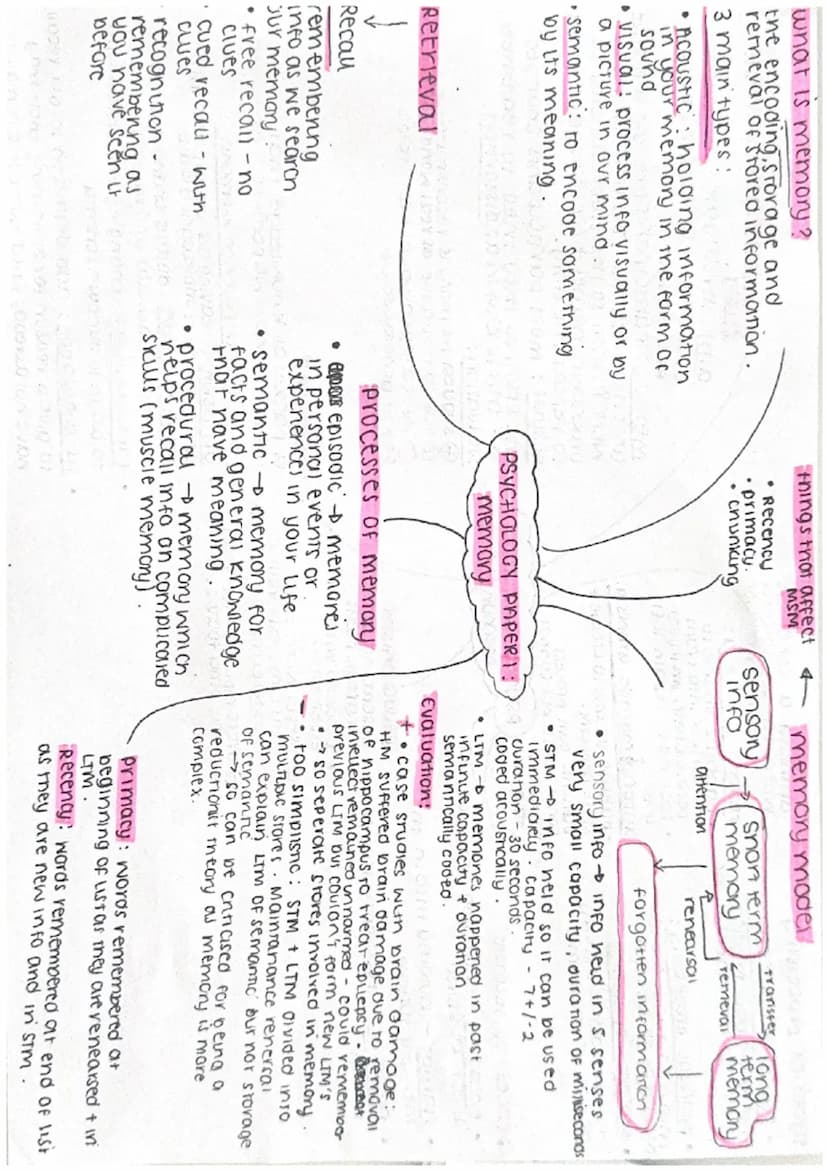 What is memory?
the encoding, storage and
retrieval of stored information.
3 main types:
• Acoustic: holding information
in your memory in the form of
sound
• visual: process info visually or by
a picture in our mind.
• semantic: to encode something
by its meaning.
Retrieval
Recall
remembering
info as we search
our memory
• free recall - no
clues
cued recall - with
clues
recognition -
remembering as
you have seen it
before
PSYCHOLOGY PAPER 1:
memory
processes of memory
• episodic → memories
in personal events or
experiences in your life
• semantic → memory for
facts and general knowledge
that have meaning.
• procedural → memory which
helps recall info on complicated
skills (muscle memory).
things that affect
MSM
• Recency
• primacy.
• chunking
memory model
sensory
info
attention
short term
memory
rehearsal
transfer
retrieval
long
term
memory
forgotten information
• sensory info → info held in 5 senses
very small capacity, duration of miniseconds
• STM → info held so it can be used
immediately. capacity - 7+/-2
duration - 30 seconds.
coded acoustically.
• LTM → memories happened in past
infinite capacity + duration
semantically coded.
evaluation:
+ • case studies with brain damage:
HM suffered brain damage due to removal
of hippocampus to treat epilepsy -
intellect remained unharmed - could remember
previous LTM but couldn't form new LTM's
• → so seperate stores involved in memory.
- • too simplistic: STM + LTM divided into
multiple stores. Maintanance rehersal
can explain LTM of semantic but not storage
of semantic
→ so can be criticised for being a
reductionist theory as memory is more
complex.
primacy: words remembered at
beginning of list as they are rehearsed + in
LTM.
Recency: words remembered at end of list
as they are new info and in STM.